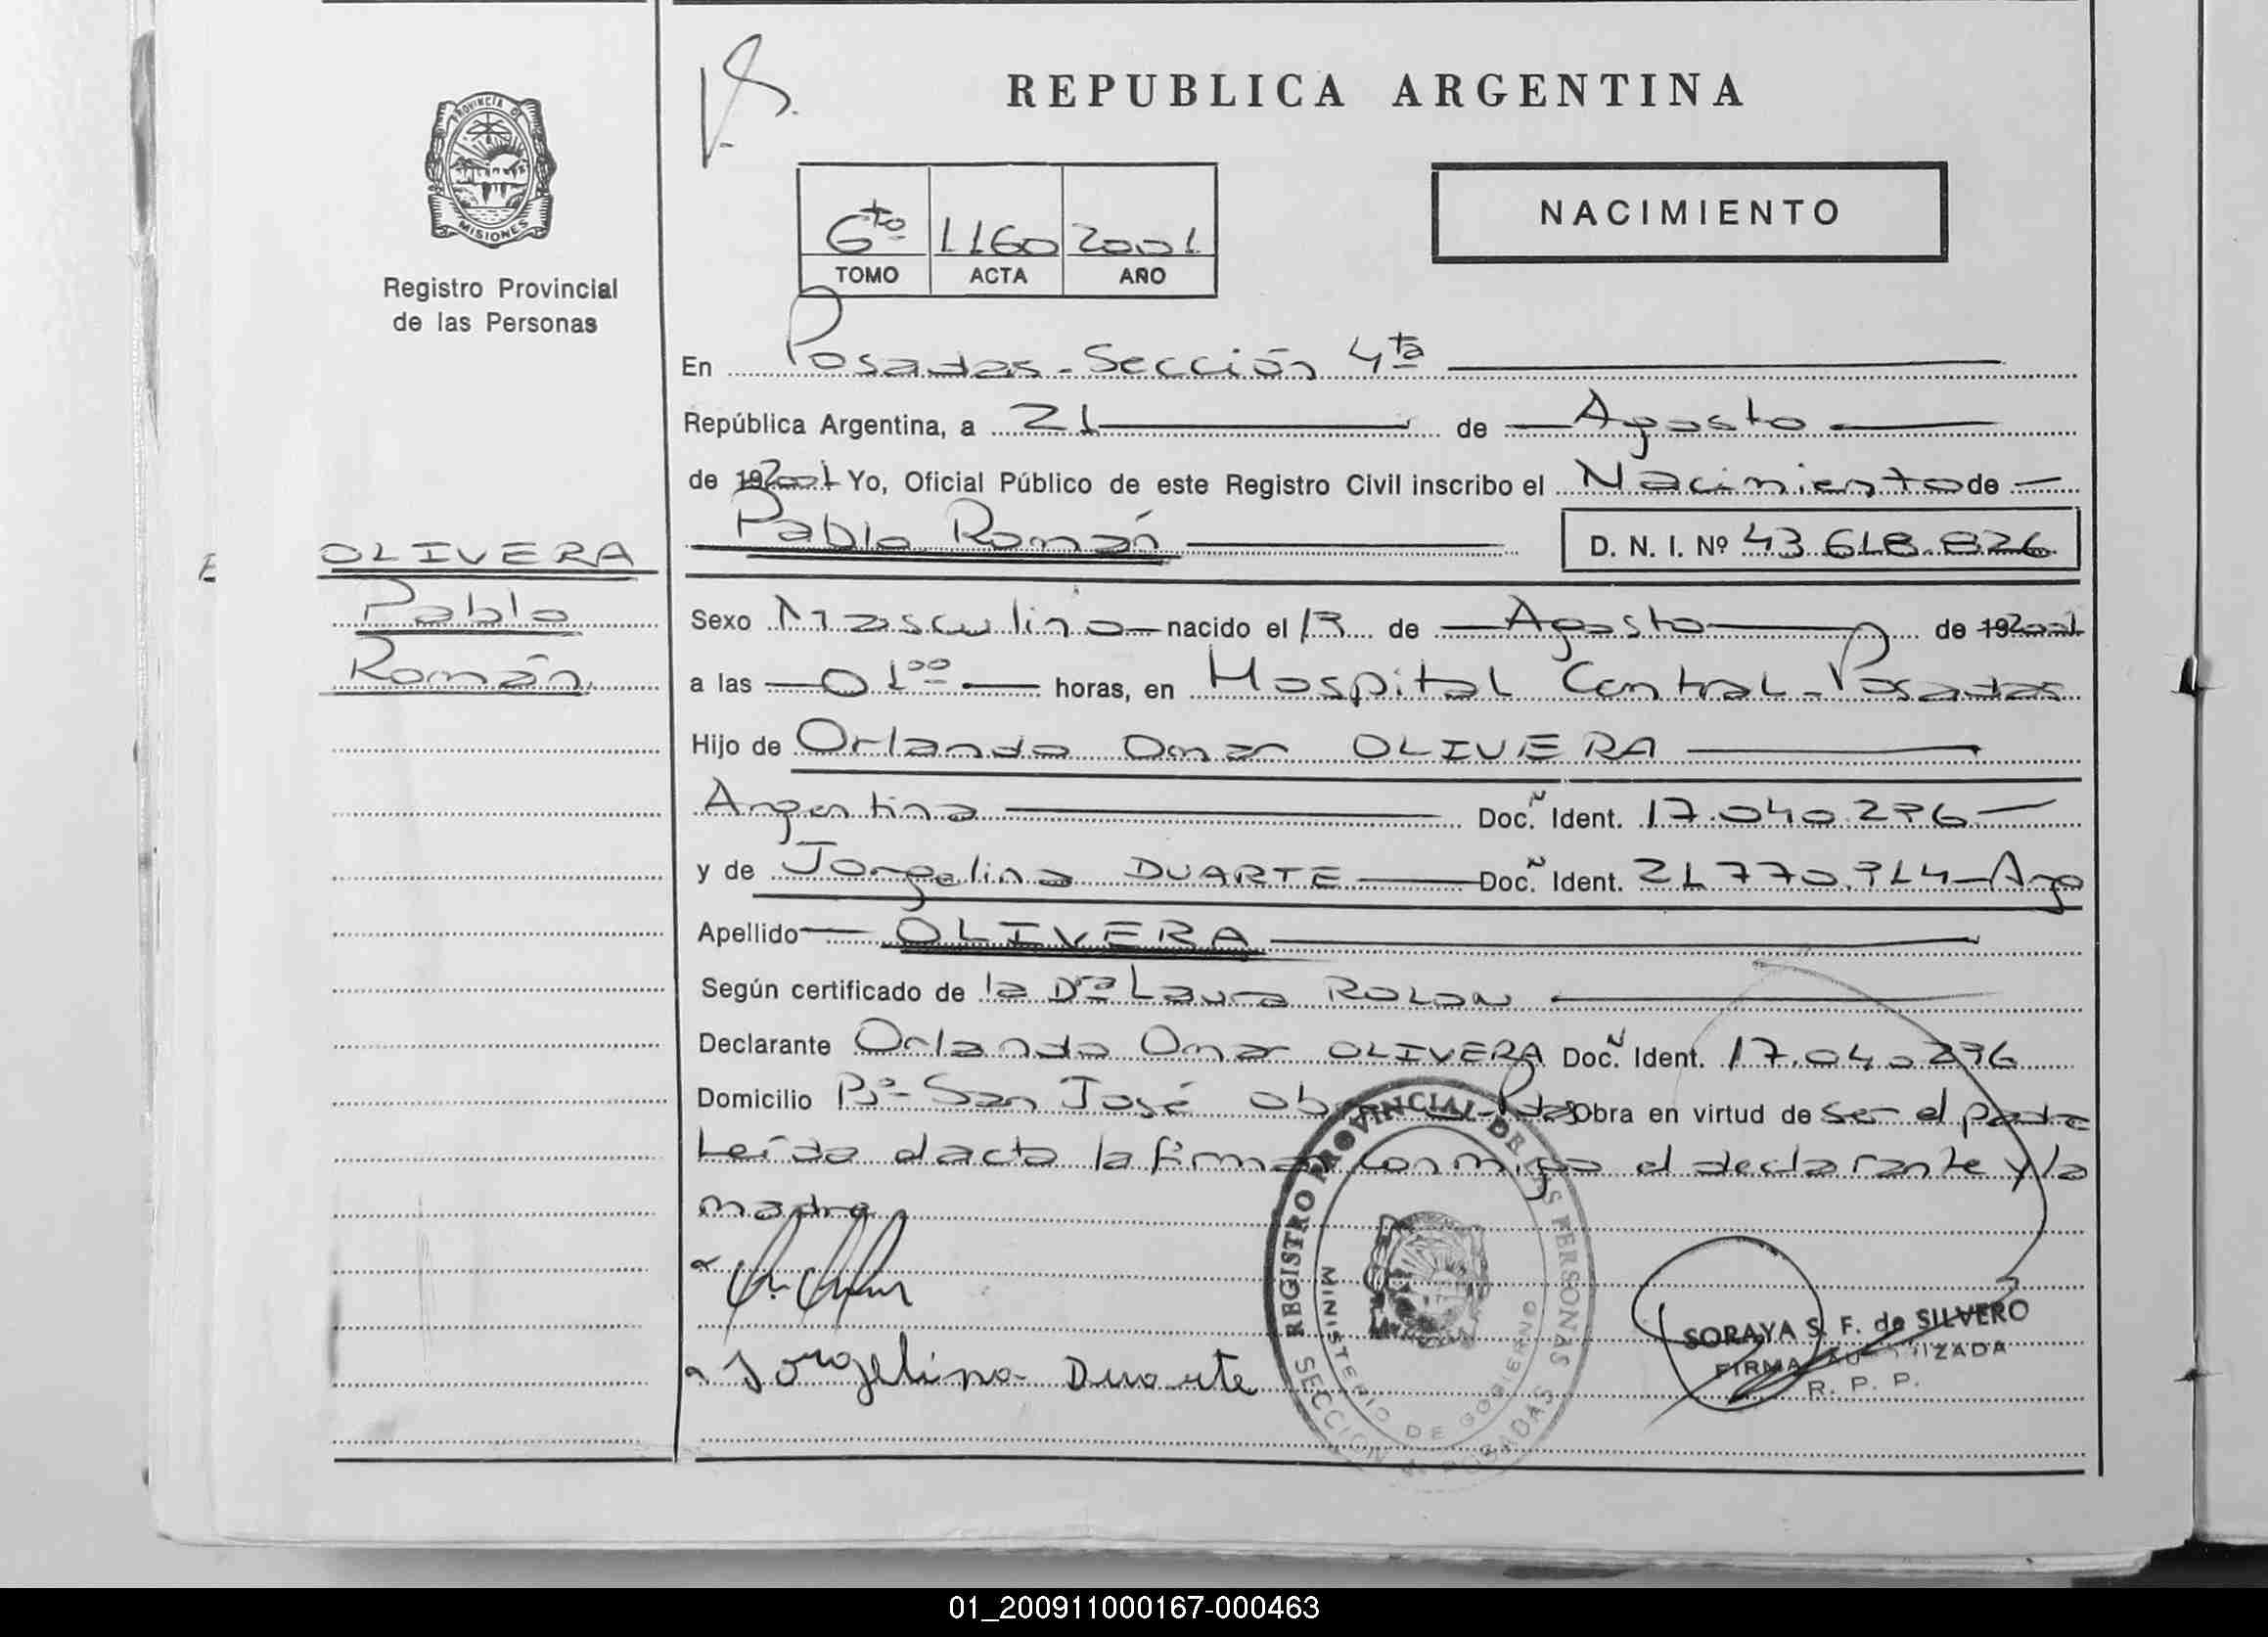 PROVINCIA DE
MISIONES
Registro Provincial
de las Personas
OLIVERA
Pablo
Román
REPUBLICA ARGENTINA
6to 1160 2001
TOMO ACTA AÑO
NACIMIENTO
En Posadas - Sección 4ta
República Argentina, a 21 de Agosto
de 192001 Yo, Oficial Público de este Registro Civil inscribo el Nacimiento de
Pablo Román D. N. I. Nº 43 618.826
Sexo Masculino nacido el 13 de Agosto de 192001
a las 01oo horas, en Hospital Central - Posadas
Hijo de Orlando Omar OLIVERA
Argentina Doc. Ñ Ident. 17.040.296
y de Jorgelina DUARTE Doc. Ñ Ident. 21.770.914 - Arg
Apellido OLIVERA
Según certificado de la Dra Laura ROLON
Declarante Orlando Omar OLIVERA Doc. N Ident. 17.040.296
Domicilio Bº San José Obrero - Pdas Obra en virtud de ser el padre
Leída el acta la firman conmigo el declarante y la
madre
Jorgelina Duarte
REGISTRO PROVINCIAL DE LAS PERSONAS
MINISTERIO DE GOBIERNO
SECCION POSADAS
SORAYA S. F. de SILVERO
FIRMA AUTORIZADA
R. P. P.
01_200911000167-000463